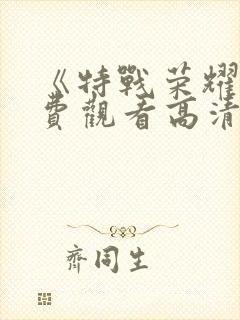 《特戰荣耀
費觀看高清
齊同生